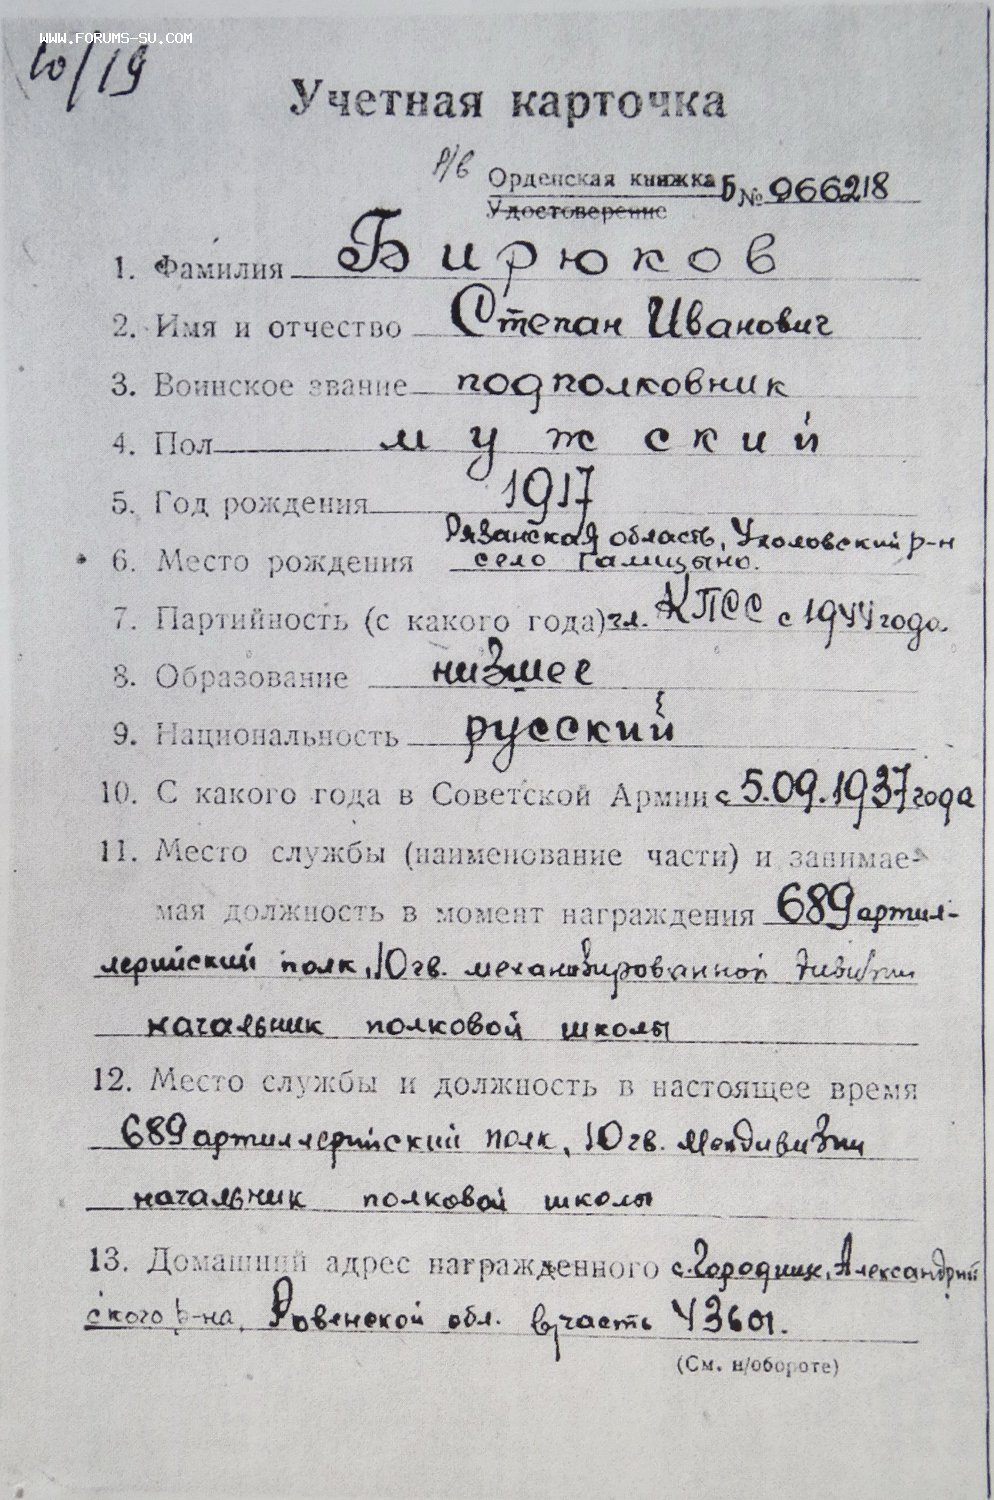 WWW.FORUMS-SU.COM
10/19
Учетная карточка
Р/в Орденская книжка Б № 966218
Удостоверение
1. Фамилия Бирюков
2. Имя и отчество Степан Иванович
3. Воинское звание подполковник
4. Пол мужский
5. Год рождения 1917
Рязанская область, Ухоловский р-н
6. Место рождения село Галицыно.
7. Партийность (с какого года) чл. КПСС с 1944 года.
8. Образование низшее
9. Национальность русский
10. С какого года в Советской Армии с 5.09.1937 года
11. Место службы (наименование части) и занимае-
мая должность в момент награждения 689 артил-
лерийский полк, 10 гв. механизированной дивизии
начальник полковой школы
12. Место службы и должность в настоящее время
689 артиллерийский полк, 10 гв. мехдивизии
начальник полковой школы
13. Домашний адрес награжденного с. Городник, Александрий
ского р-на, Ровенской обл. в/часть 43601.
(См. н/обороте)